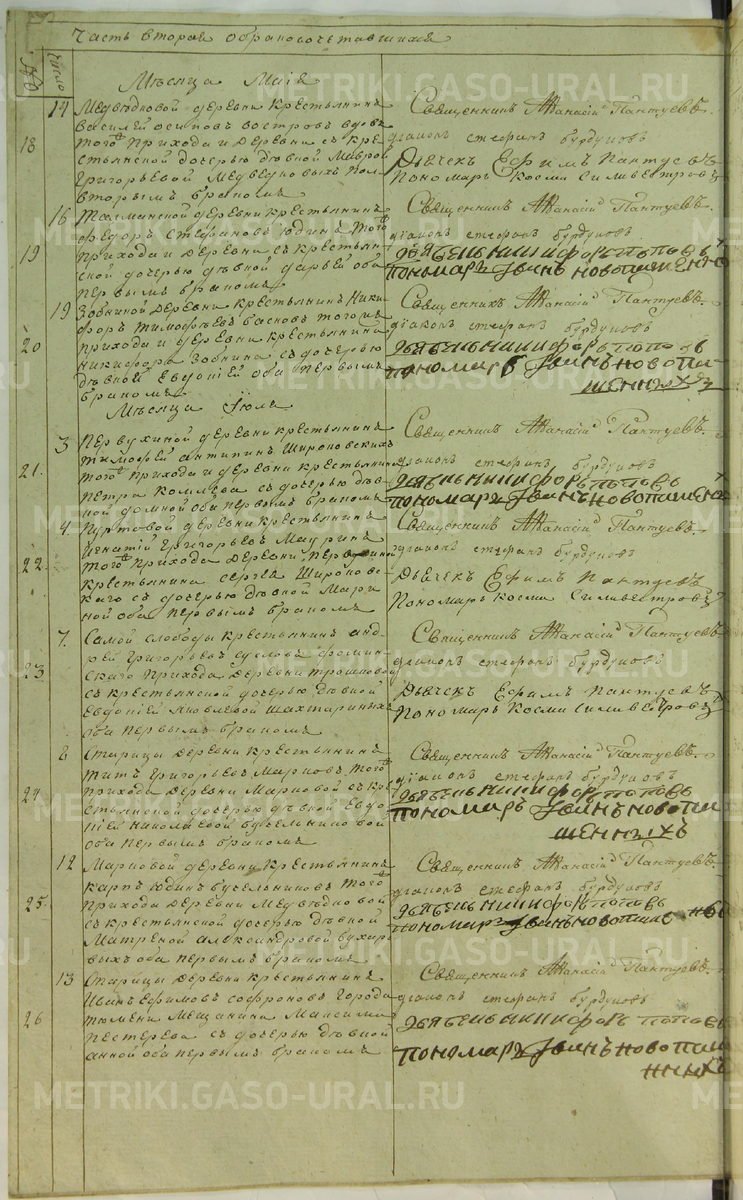 Часть вторая о бракосочетавшихся
№.
Число
Мѣсяца Маія
18
14
Медвѣдковой деревни крестьянинъ
Василей Осиповъ Востровъ вдовъ
того прихода и деревни съ кре
стьянской дочерью дѣвкой Маврой
Григорьевой Медведковыхъ
вторымъ бракомъ
Священникъ Аѳанасій Пантуевъ
діаконъ стефанъ бурдуковъ
Дьячекъ Ефимъ Пантуевъ
Пономарь Косма Силивестровъ
19
16
деревни крестьянинъ
Федоръ Стефановъ Юдинъ того
прихода и деревни съ крестьян
ской дочерью дѣвкой дарьей оба
первымъ бракомъ
Священникъ Аѳанасій Пантуевъ
діаконъ стефанъ бурдуковъ
дьячекъ никифоръ поповъ
пономарь Іванъ новопашенно
20
19
Зобниной деревни крестьянинъ Ники
форъ Тимофѣевъ Басковъ того
прихода и деревни крестьянина
Никифора Зобнина съ дочерью
дѣвкой Евдокіей оба первымъ
бракомъ
Священникъ Аѳанасій Пантуевъ
діаконъ стефанъ бурдуковъ
дьячекъ никифоръ поповъ
пономарь Іванъ новопа
шенныхъ
Мѣсяца Іюля
21.
3
Первухиной деревни крестьянинъ
тимофей антипинъ Широковскихъ
того прихода и деревни крестьянина
петра комлева съ дочерью дѣв
кой домной оба первымъ бракомъ
Священникъ Аѳанасій Пантуевъ
діаконъ стефанъ бурдуковъ
дьячекъ никифоръ поповъ
пономарь Іванъ новопашенн
22.
4.
Пуртовой деревни крестьянинъ
Игнатій Григорьевъ Мауринъ
того прихода деревни первухиной
крестьянина Сергея Широковс
каго съ дочерью дѣвкой Мари
ной оба первымъ бракомъ
Священникъ Аѳанасій Пантуевъ
діаконъ стефанъ бурдуковъ
Дьячекъ Ефимъ Пантуевъ
Пономарь Косма Силивестровъ
23
7.
Самой слободы крестьянинъ анд
рей Григорьевъ Сусловъ фомин
скаго прихода деревни трошковой
съ крестьянской дочерью дѣвкой
Евдокіей Яковлевой Шахтариныхъ
оба первымъ бракомъ
Священникъ Аѳанасій Пантуевъ
діаконъ стефанъ бурдуковъ
Дьячекъ Ефимъ Пантуевъ
Пономарь Косма Силивестровъ
24.
8
Старицы деревни крестьянинъ
титъ Григорьевъ Марковъ того
прихода деревни Марковой съ кре
стьянской дочерью дѣвкой Евдо
кіей Николаевой Бусельниковой
оба первымъ бракомъ
Священникъ Аѳанасій Пантуевъ
діаконъ стефанъ бурдуковъ
дьячекъ никифоръ поповъ
пономарь Іванъ новопа
шенныхъ
25.
12
Марковой деревни крестьянинъ
карпъ Юдинъ Бусельниковъ того
прихода деревни Медвѣдковой
съ крестьянской дочерью дѣвкой
Матреной александровой Бухаро
выхъ оба первымъ бракомъ
Священникъ Аѳанасій Пантуевъ
діаконъ стефанъ бурдуковъ
дьячекъ никифоръ поповъ
пономарь Іванъ новопаше
26
13
Старицы деревни крестьянинъ
Иванъ Ефимовъ Софроновъ города
тюмени мещанина Максима
пестерева съ дочерью дѣвкой
анной оба первымъ бракомъ
Священникъ Аѳанасій Пантуевъ
діаконъ стефанъ бурдуковъ
дьячекъ никифоръ поповъ
пономарь Іванъ новопаш
нныхъ
METRIKI.GASO-URAL.RU